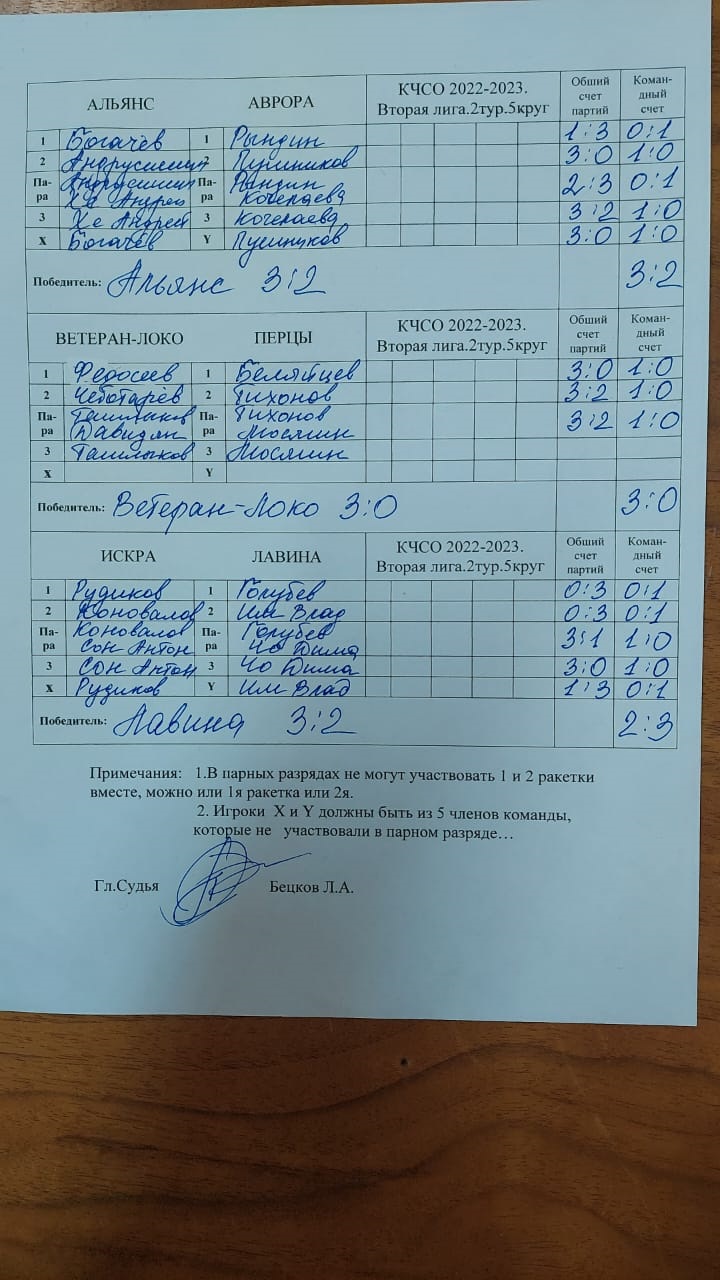 АЛЬЯНС АВРОРА КЧСО 2022-2023. Вторая лига.2тур.5круг Общий счет партий Коман-дный счет
1 Богачёв 1 Рындин 1:3 0:1
2 2 3:0 1:0
Па-ра Па-ра Рындин 2:3 0:1
Хе Андрей
3 Хе Андрей 3 3:2 1:0
X Богачёв Y 3:0 1:0
Победитель: Альянс 3:2 3:2
ВЕТЕРАН-ЛОКО ПЕРЦЫ КЧСО 2022-2023. Вторая лига.2тур.5круг Общий счет партий Коман-дный счет
1 Федосеев 1 Беляйцев 3:0 1:0
2 Чеботарёв 2 Тихонов 3:2 1:0
Па-ра Ташлыков Па-ра Тихонов 3:2 1:0
Давидян Мосякин
3 Ташлыков 3 Мосякин
X Y
Победитель: Ветеран-Локо 3:0 3:0
ИСКРА ЛАВИНА КЧСО 2022-2023. Вторая лига.2тур.5круг Общий счет партий Коман-дный счет
1 Рудиков 1 Голубев 0:3 0:1
2 Коновалов 2 Им Влад 0:3 0:1
Па-ра Коновалов Па-ра Голубев 3:1 1:0
Сон Антон Чо Дима
3 Сон Антон 3 Чо Дима 3:0 1:0
X Рудиков Y Им Влад 1:3 0:1
Победитель: Лавина 3:2 2:3
Примечания: 1.В парных разрядах не могут участвовать 1 и 2 ракетки
вместе, можно или 1я ракетка или 2я.
2. Игроки X и Y должны быть из 5 членов команды,
которые не участвовали в парном разряде…
Гл.Судья Бецков Л.А.